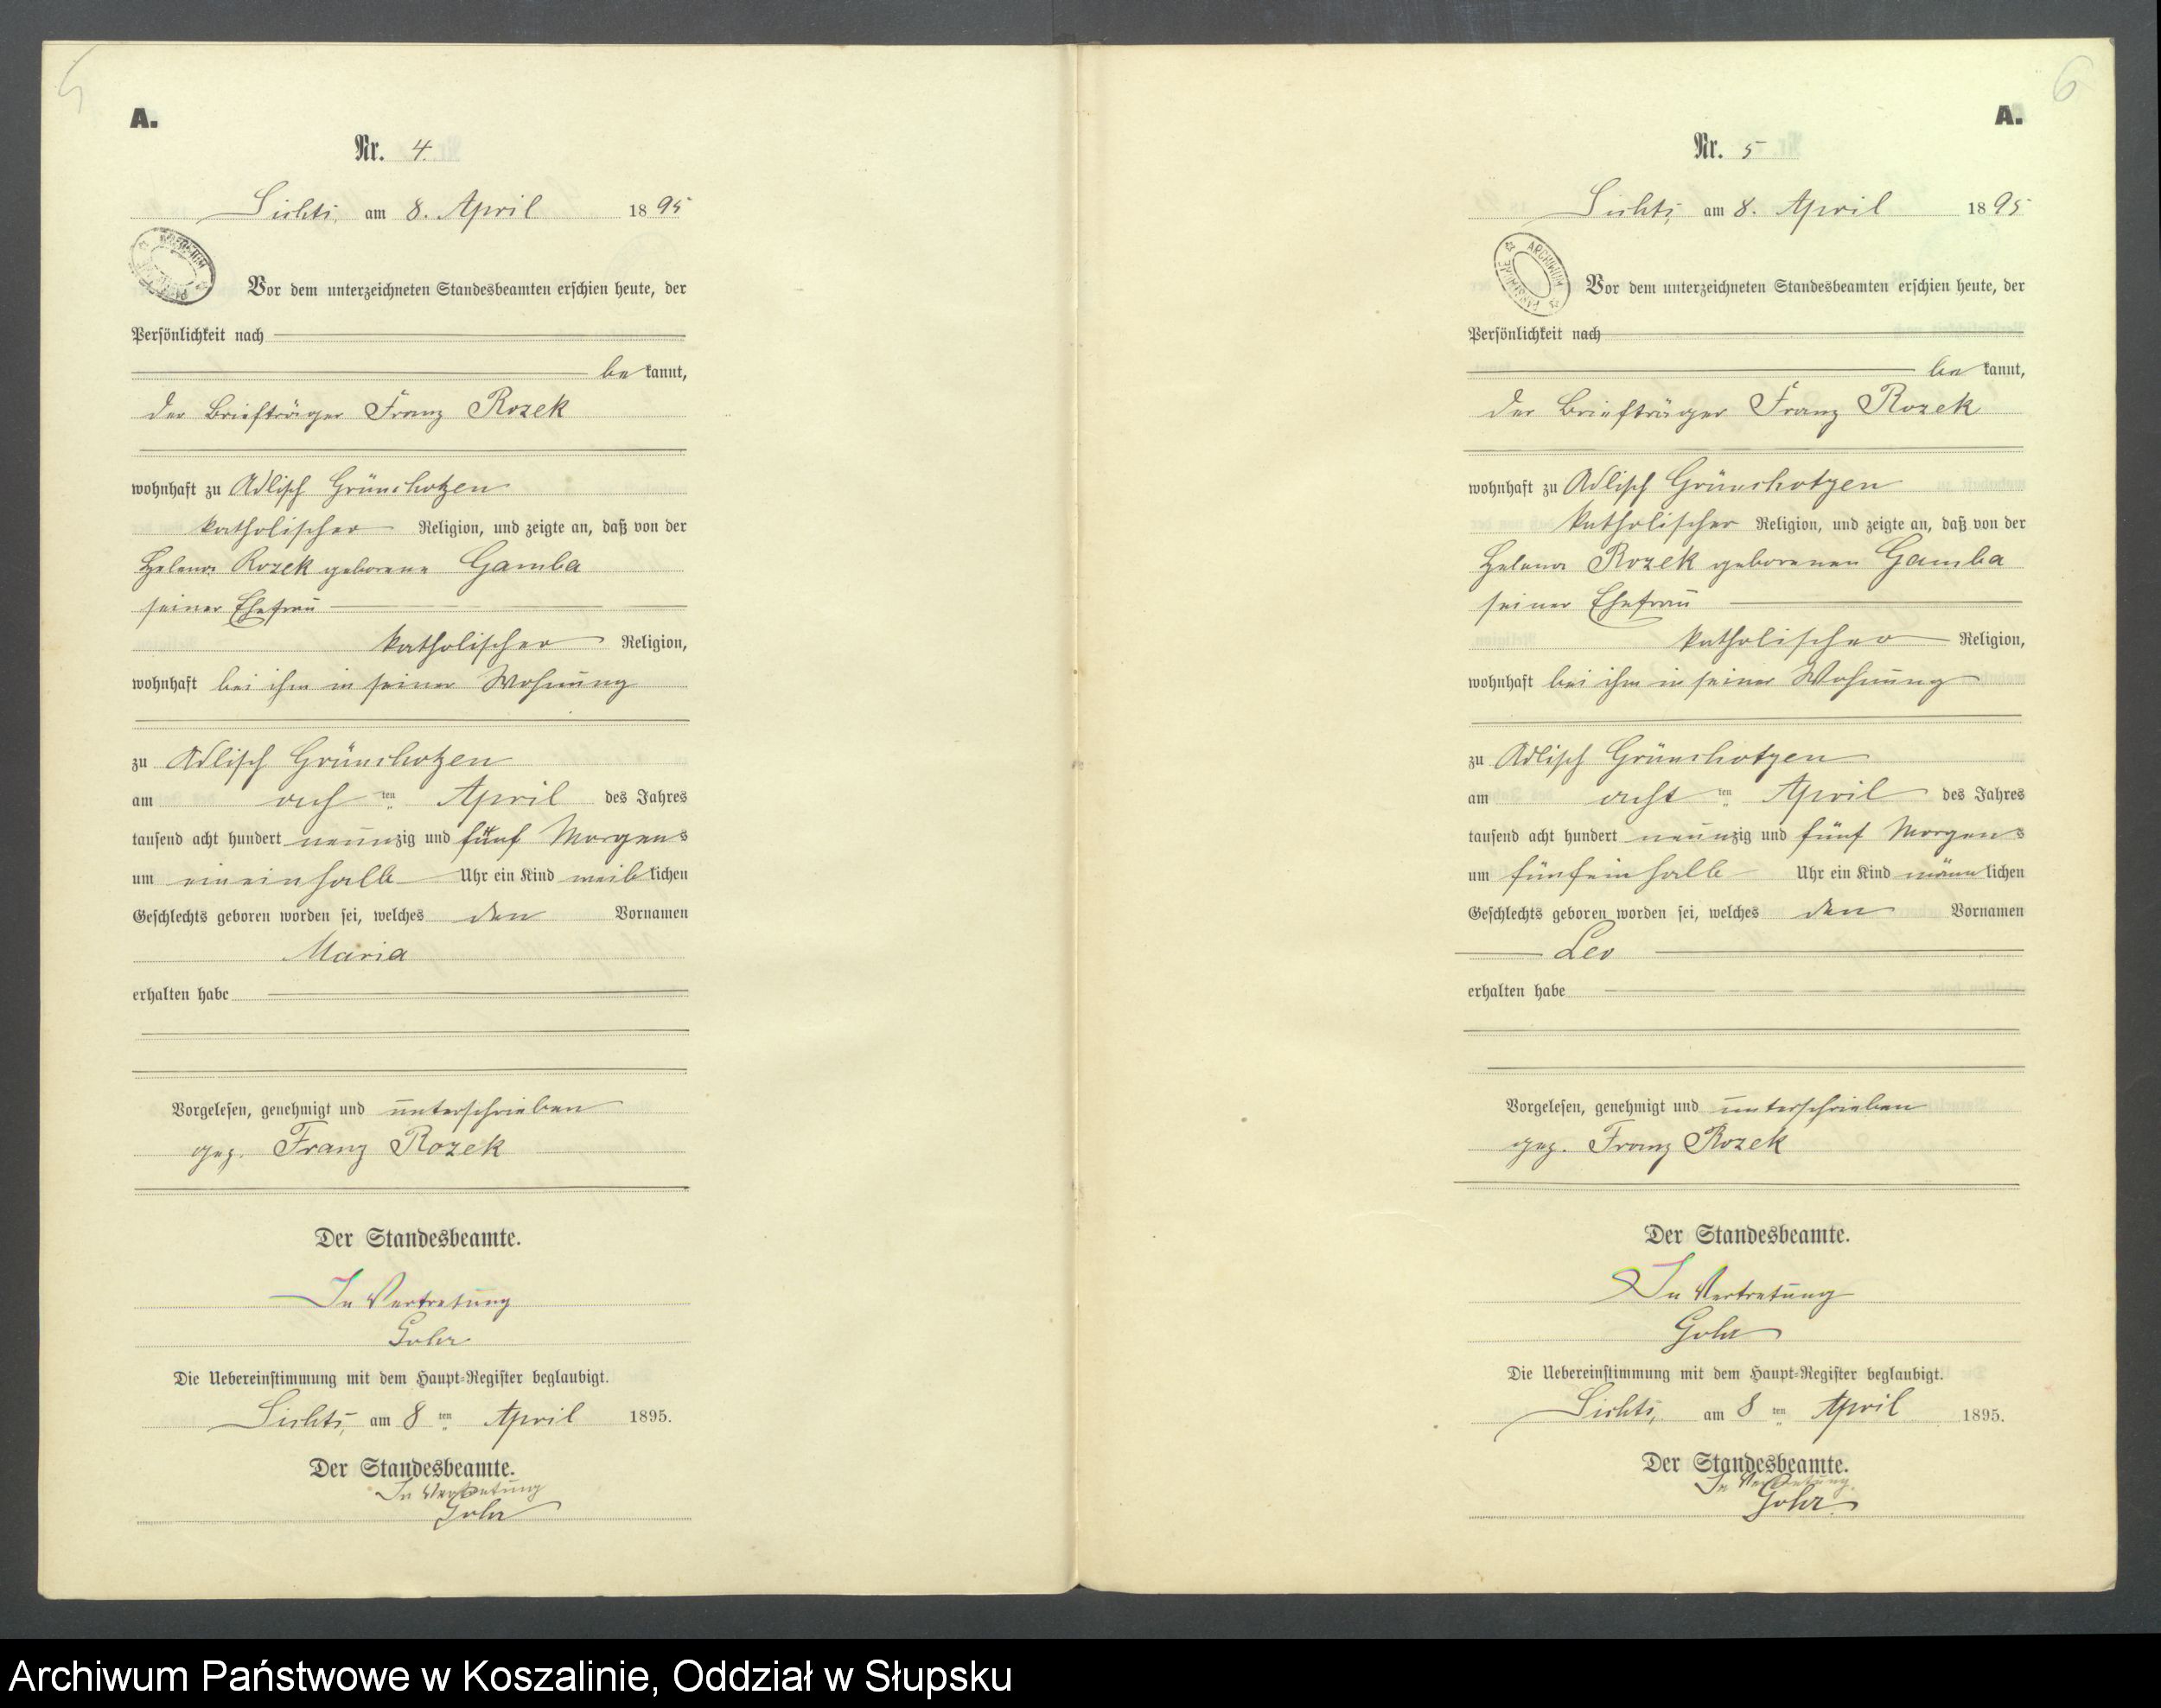 5
A.
Nr. 4.
Lichts, am 8. April 1895
Vor dem unterzeichneten Standesbeamten erschien heute, der
Persönlichkeit nach
be kannt,
der Briefträger Franz Rozek
wohnhaft zu Adlisch Grünchotzen
katholischer Religion, und zeigte an, daß von der
Helena Rozek geborene Gamba
seiner Ehefrau
katholischer Religion,
wohnhaft bei ihm in seiner Wohnung
zu Adlisch Grünchotzen
am ach ten April des Jahres
tausend acht hundert neunzig und fünf Morgens
um eineinhalb Uhr ein Kind weiblichen
Geschlechts geboren worden sei, welches den Vornamen
Maria
erhalten habe
Vorgelesen, genehmigt und unterschrieben
gez. Franz Rozek
Der Standesbeamte.
In Vertretung
Gohr
Die Uebereinstimmung mit dem Haupt-Register beglaubigt.
Lichts, am 8 ten April 1895.
Der Standesbeamte.
In Vertretung
Gohr
6
A.
Nr. 5
Lichts, am 8. April 1895
ARCHIWUM PAŃSTWOWE
Vor dem unterzeichneten Standesbeamten erschien heute, der
Persönlichkeit nach
be kannt,
der Briefträger Franz Rozek
wohnhaft zu Adlisch Grünchotzen
katholischer Religion, und zeigte an, daß von der
Helena Rozek geborenen Gamba
seiner Ehefrau
katholischer Religion,
wohnhaft bei ihm in seiner Wohnung
zu Adlisch Grünchotzen
am acht ten April des Jahres
tausend acht hundert neunzig und fünf Morgens
um fünfeinhalb Uhr ein Kind männlichen
Geschlechts geboren worden sei, welches den Vornamen
Leo
erhalten habe
Vorgelesen, genehmigt und unterschrieben
gez. Franz Rozek
Der Standesbeamte.
In Vertretung
Gohr
Die Uebereinstimmung mit dem Haupt-Register beglaubigt.
Lichts, am 8 ten April 1895.
Der Standesbeamte.
In Vertretung
Gohr.
Archiwum Państwowe w Koszalinie, Oddział w Słupsku